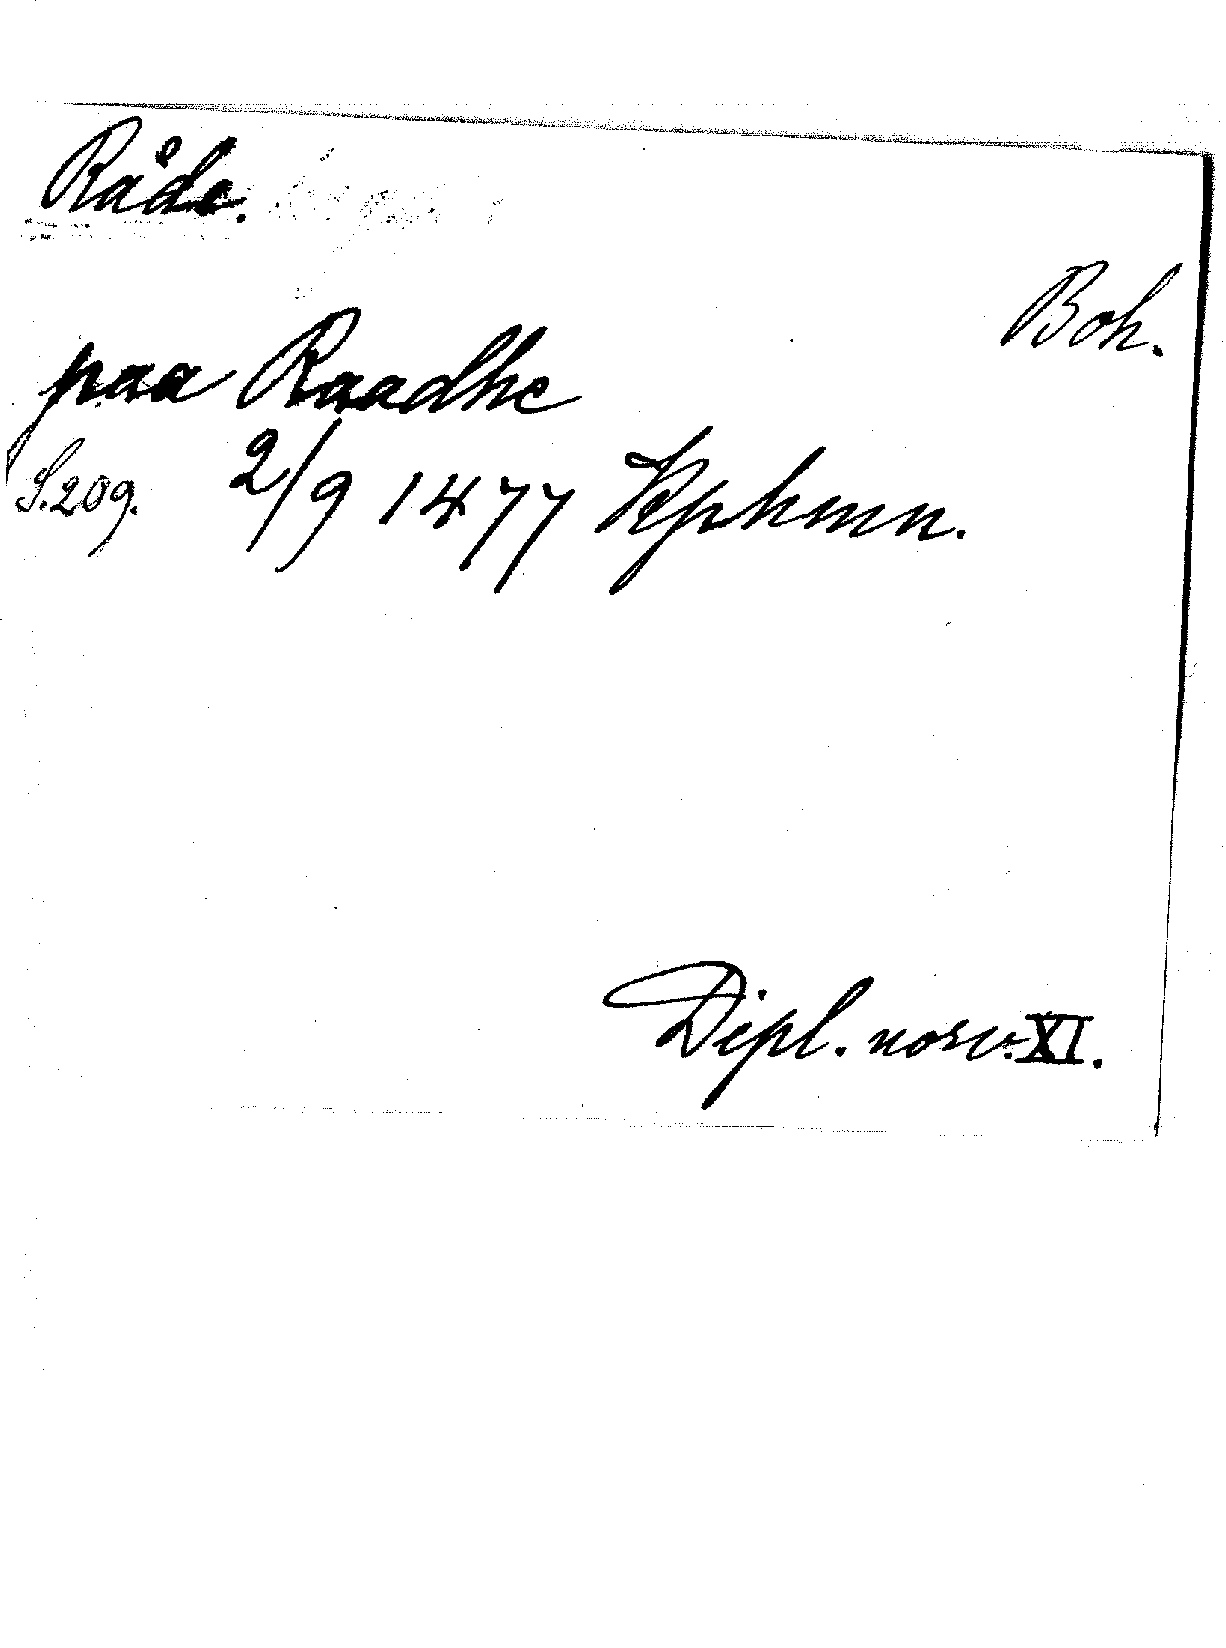 Råde.
Boh.
paa Raadhe
S. 209. 2/9 1477 Kphmn.
Dipl. norv. XI.